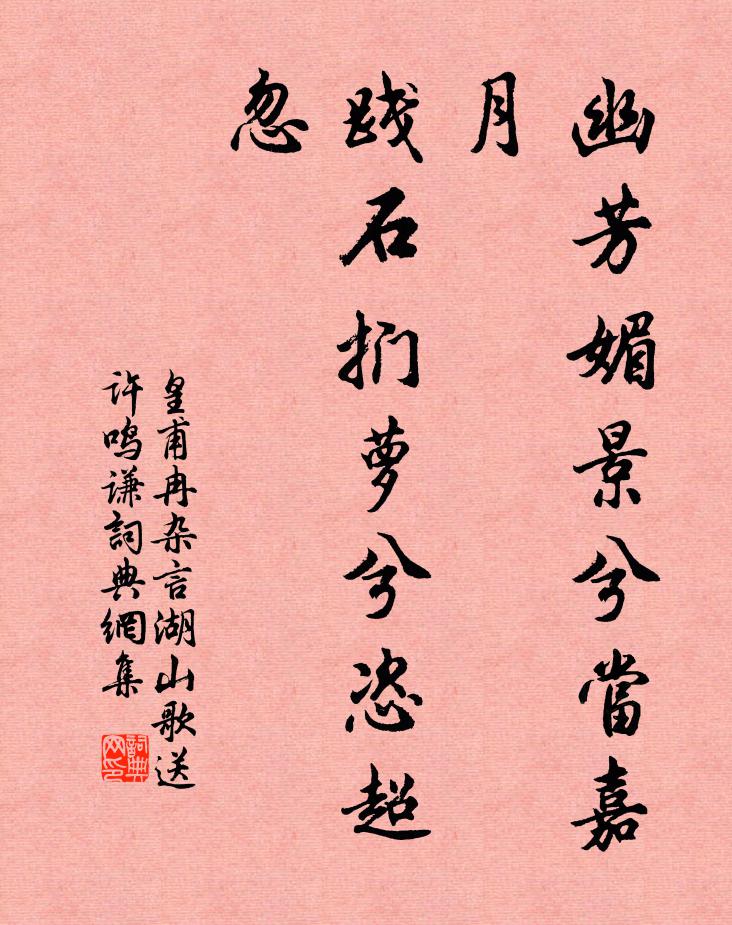 幽芳媚景兮當嘉
月
踐石捫萝兮恣超
忽
皇甫冉杂言湖山歌送
许鸣谦詞典網集
詞典
网印